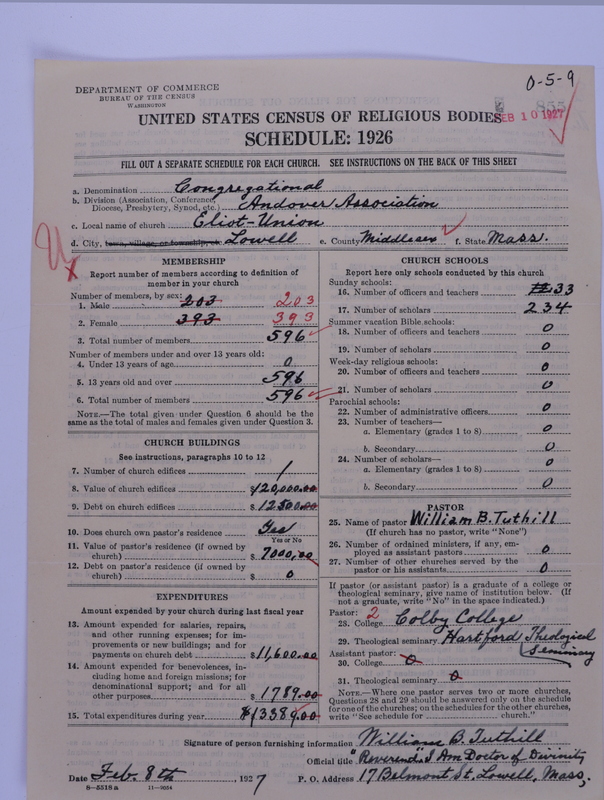 0-5-9
DEPARTMENT OF COMMERCE
BUREAU OF THE CENSUS
WASHINGTON
FEB 10 1927
UNITED STATES CENSUS OF RELIGIOUS BODIES
SCHEDULE: 1926
FILL OUT A SEPARATE SCHEDULE FOR EACH CHURCH. SEE INSTRUCTIONS ON THE BACK OF THIS SHEET
a. Denomination Congregational
b. Division (Association, Conference, Diocese, Presbytery, Synod, etc.) Andover Association
c. Local name of church Eliot-Union
d. City, town, village, or township Lowell e. County Middlesex f. State Mass.
MEMBERSHIP
Report number of members according to definition of
member in your church
Number of members, by sex:
1. Male 203 203
2. Female 393 393
3. Total number of members 596
Number of members under and over 13 years old:
4. Under 13 years of age 0
5. 13 years old and over 596
6. Total number of members 596
NOTE.—The total given under Question 6 should be the
same as the total of males and females given under Question 3.
CHURCH BUILDINGS
See instructions, paragraphs 10 to 12
7. Number of church edifices 1
8. Value of church edifices $120,000.00
9. Debt on church edifices $12500.00
10. Does church own pastor's residence? Yes
Yes or No
11. Value of pastor's residence (if owned by
church) $7000.00
12. Debt on pastor's residence (if owned by
church) $ 0
EXPENDITURES
Amount expended by your church during last fiscal year
13. Amount expended for salaries, repairs,
and other running expenses; for im-
provements or new buildings; and for
payments on church debt $11,600.00
14. Amount expended for benevolences, in-
cluding home and foreign missions; for
denominational support; and for all
other purposes $1789.00
15. Total expenditures during year $13389.00
CHURCH SCHOOLS
Report here only schools conducted by this church
Sunday schools:
16. Number of officers and teachers 33
17. Number of scholars 234
Summer vacation Bible schools:
18. Number of officers and teachers 0
19. Number of scholars 0
Week-day religious schools:
20. Number of officers and teachers 0
21. Number of scholars 0
Parochial schools:
22. Number of administrative officers 0
23. Number of teachers—
a. Elementary (grades 1 to 8) 0
b. Secondary 0
24. Number of scholars—
a. Elementary (grades 1 to 8) 0
b. Secondary 0
PASTOR
25. Name of pastor William B. Tuthill
(If church has no pastor, write "None")
26. Number of ordained ministers, if any, em-
ployed as assistant pastors 0
27. Number of other churches served by the
pastor or his assistants 0
If pastor (or assistant pastor) is a graduate of a college or
theological seminary, give name of institution below. (If
not a graduate, write "No" in the space indicated.)
Pastor: 2
28. College Colby College
29. Theological seminary Hartford Theological Seminary
Assistant pastor:
30. College 0
31. Theological seminary 0
NOTE.—Where one pastor serves two or more churches,
Questions 28 and 29 should be answered only on the schedule
for one of the churches; on the schedules for the other churches,
write "See schedule for church."
Signature of person furnishing information William B. Tuthill
Official title "Reverend. I Am Doctor of Divinity
Date Feb. 8th, 1927 P. O. Address 17 Belmont St. Lowell, Mass,
8-5518a 11-9054